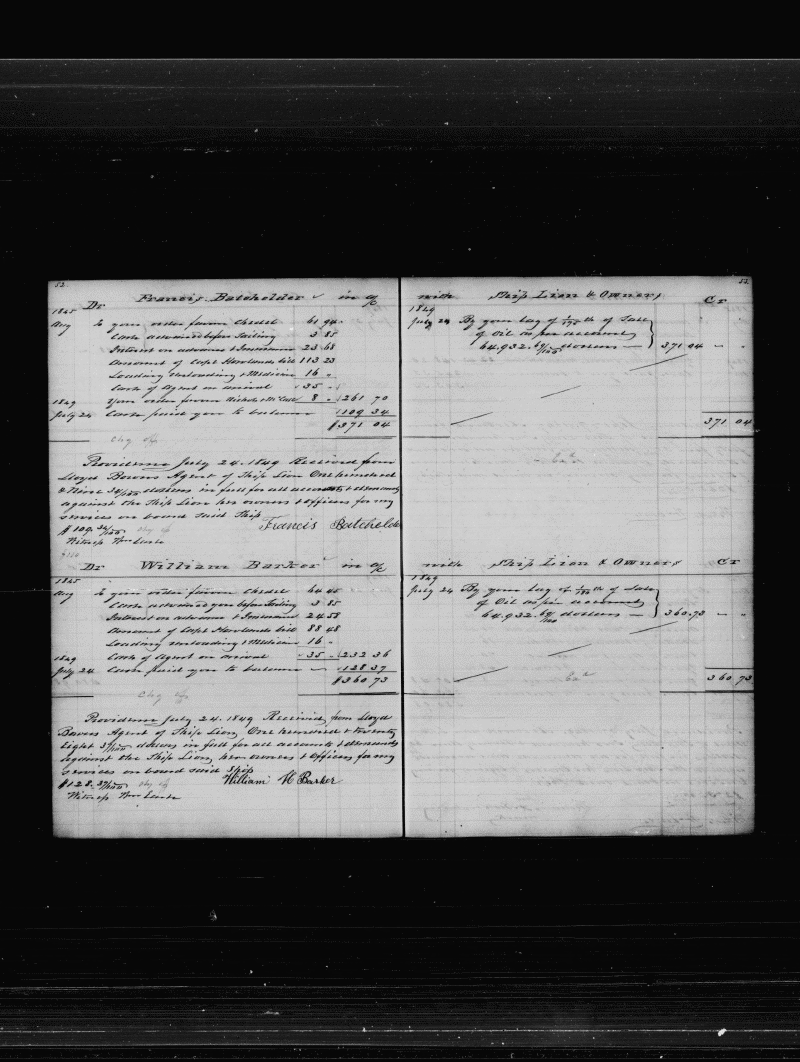 52
Dr Francis Batcheldor in a/c
1845
Aug To your order favor Chedel 61 94
Cash advanced before Sailing 3 85
Interest on advance & Insurance 23 68
Amount of Capt Howlands bill 113 23
Loading Unloading & Medicine 16 "
Cash of Agent on arrival 35 "
1849 Your order favor Nichols & 8 " 261 70
July 24 Cash paid you to balance 109 34
$371 04
Chg off
Providence July 24. 1849 Received from
Lloyd Bowers Agent of Ship Lion One hundred
& Nine 34/100 dollars in full for all accounts & demands
against the Ship Lion her owners & Officers for my
services on board said Ship
$109. 34/100 chg off Francis Batcheldor
Witness Wm Earle
Dr William Barker in a/c
1845
Aug To your order favor Chedel 64 45
Cash advanced you before Sailing 3 85
Interest on advance & Insurance 24 58
Amount of Capt Howlands bill 88 48
Loading unloading & Medicine 16 "
1849 Cash of Agent on arrival 35 " 232 36
July 24 Cash paid you to balance 128 37
$360 73
Chg off
Providence July 24. 1849 Received from Lloyd
Bowers Agent of Ship Lion One hundred & twenty
Eight 37/100 dollars in full for all accounts & demands
against the Ship Lion, her owners & Officers for my
services on board said Ship
$128. 37/100 chg off William H Barker
Witness Wm Earle
52
with Ship Lion & Owners Cr
1849
July 24 By your lay of of Sale
of Oil as per account
64.932. 69/100 dollars 371 04 " "
371 04
with Ship Lion & Owners Cr
1849
July 24 By your lay of of Sale
of Oil as per account
64.932. 69/100 dollars 360.73 " "
Exd
360 73